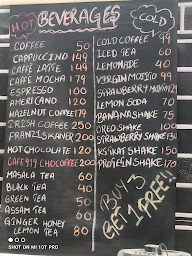 HOT BEVERAGES COLD
COFFEE 50
CAPPUCCINO 149
CAFFE LATTE 149
CAFE MOCHA 179
ESPRESSO 100
AMERICANO 120
HAZELNUT COFFEE 179
IRISH COFFEE 250
FRANZISKANER 200
HOT CHOCOLATE 120
CAFE919 CHOCOFFEE 200
MASALA TEA 60
BLACK TEA 40
GREEN TEA 50
ASSAM TEA 60
GINGER HONEY
LEMON TEA 80
COLD COFFEE 99
ICED TEA 60
LEMONADE 40
VIRGIN MOJITO 99
STRAWBERRY MOJITO
LEMON SODA 70
BANANA SHAKE 75
OREO SHAKE 100
STRAWBERRY SHAKE 130
KITKAT SHAKE 150
PROTEIN SHAKE 170
BUY 3
GET 1 FREE!!
SHOT ON MI 10T PRO